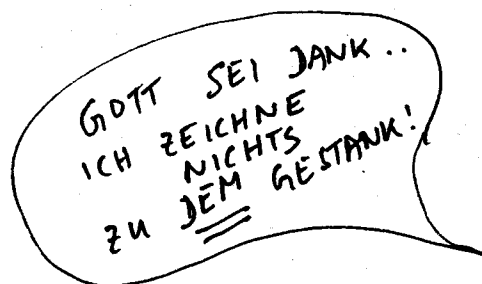 GOTT SEI DANK..
ICH ZEICHNE
NICHTS
ZU DEM GESTANK!